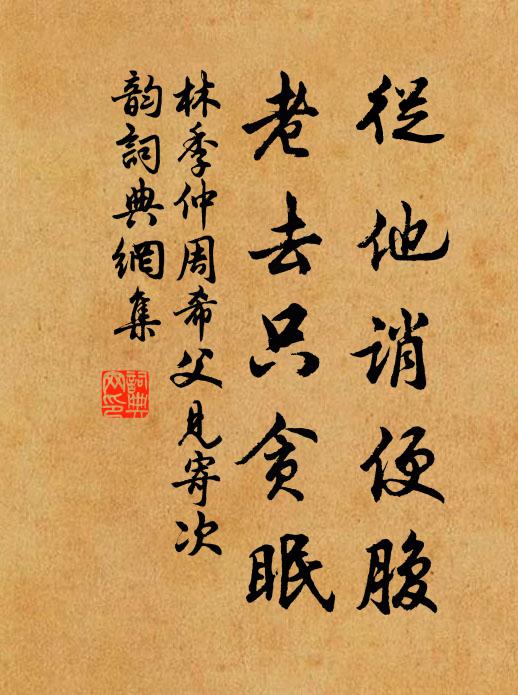 從他誚便腹
老去只貪眠
林季仲周希父見寄次
韵詞典網集
詞典
網印